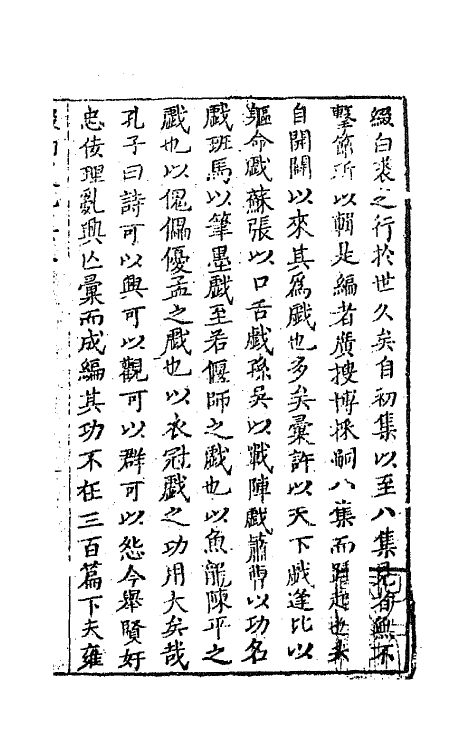 綴白裘之行於世久矣自初集以至八集見者無不
擊節所以輯是編者廣搜博採嗣八集而踵起也夫
自開闢以來其爲戲也多矣巢許以天下戲逢比以
軀命戲蘇張以口舌戲孫吳以戰陣戲蕭曹以功名
戲班馬以筆墨戲至若偃師之戲也以魚龍陳平之
戲也以傀儡優孟之戲也以衣冠戲之功用大矣哉
孔子曰詩可以興可以觀可以群可以怨今舉賢奸
忠佞理亂興亡彙而成編其功不在三百篇下夫雍